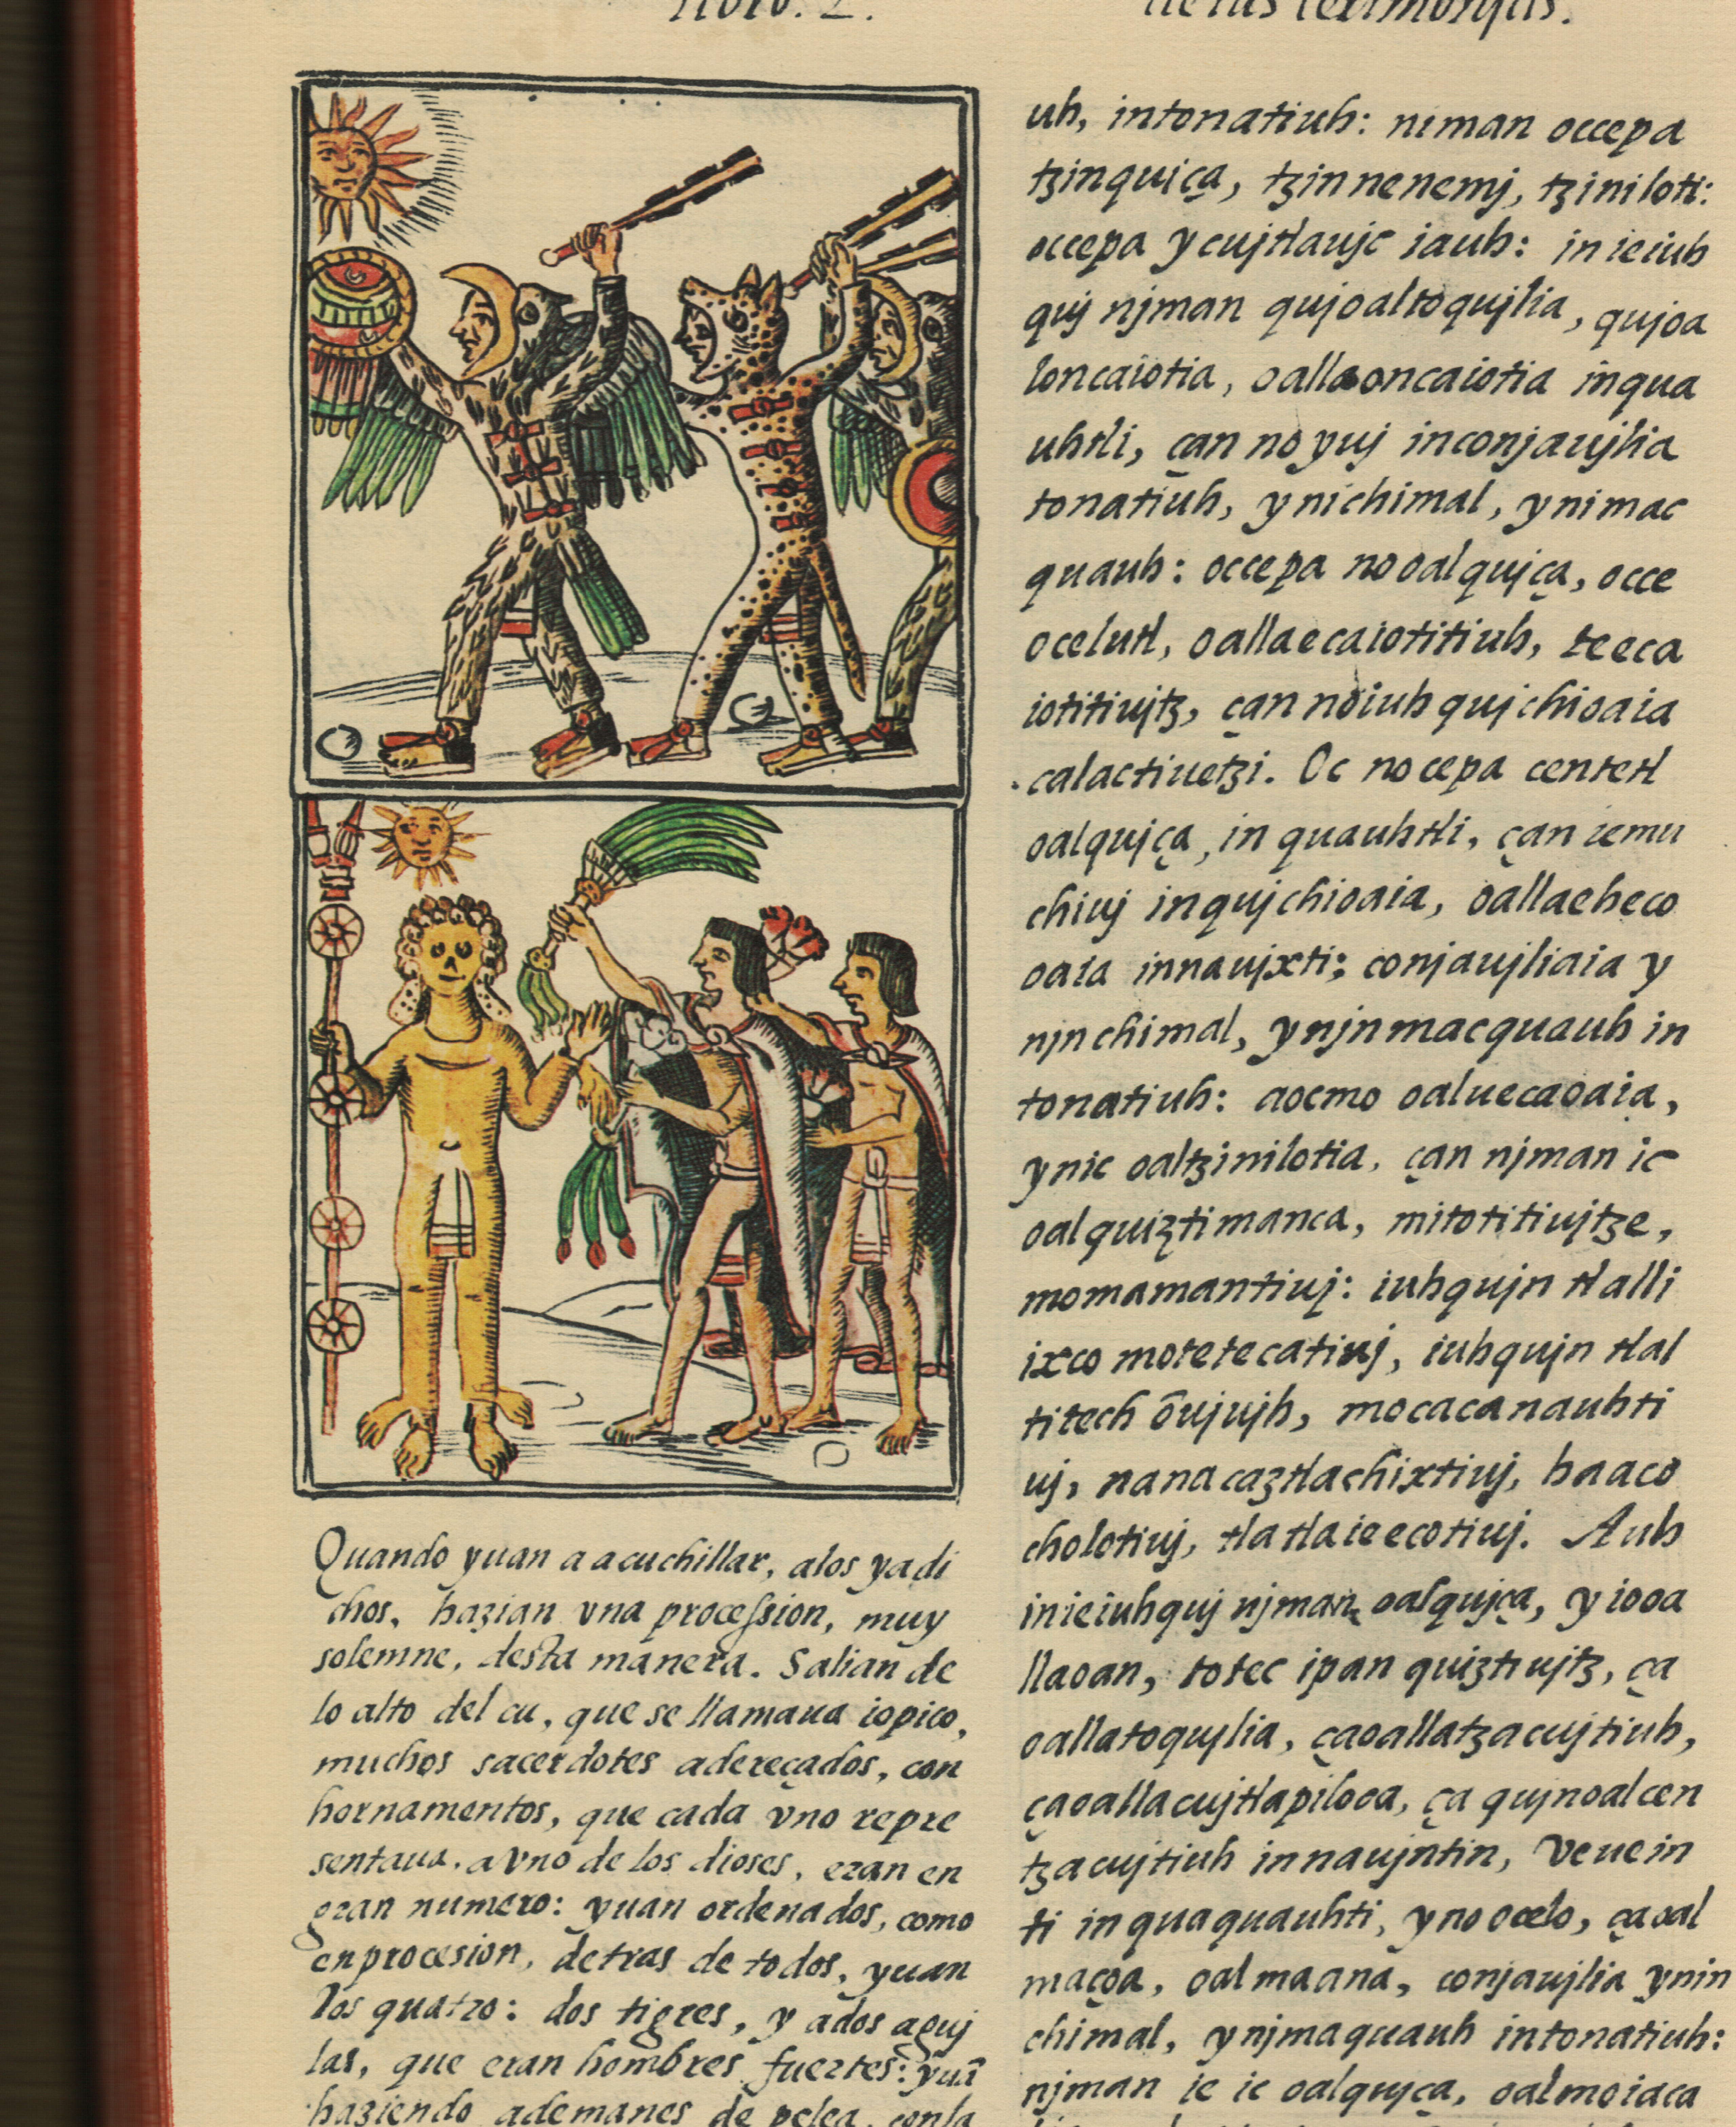 de las cerimonjas.
Quando yuan a acuchillar, alos yadi
chos, hazian vna procession, muy
solemne, desta manera. Salian de
lo alto del cu, que se llamaua iopico,
muchos sacerdotes adereçados, con
hornamentos, que cada vno repre
sentaua, a vno de los dioses, eran en
gran numero: yuan ordenados, como
en procesion, detras de todos, yuan
los quatro: dos tigres, y ados aguj
las, que eran hombres fuertes: yuā
haziendo ademanes de pelea, conla
uh, intonatiuh: niman occepa
tzinquiça, tzinnenemj, tziniloti:
occepa ycujtlaujc iauh: in ieiuh
quj njman qujoaltoqujlia, qujoa
loncaiotia, oallaoncaiotia inqua
uhtli, çan no yuj inconjaujlia
tonatiuh, ynichimal, ynimac
quauh: occepa no oalqujça, occe
ocelutl, oallaecaiotitiuh, teeca
iotitiujtz, çan noiuh qujchioaia
calactiuetzi. Oc no cepa centetl
oalqujça, in quauhtli, çan iemu
chiuj inqujchioaia, oallaeheco
oaia innaujxti; conjaujliaia y
njnchimal, ynjnmacquauh in
tonatiuh: aocmo oaluecaoaia,
ynic oaltzinilotia, çan njman ic
oalquiztimanca, mitotitiujtze,
momamantiuj: iuhqujn tlalli
ixco motetecatiuj, iuhqujn tlal
titech ōujujh, mocacanauhti
uj, nanacaztlachixtiuj, haaco
cholotiuj, tlatlaieecotiuj. Auh
inieiuhquj njman, oalqujça, y iooa
llaoan, totec ipan quiztiujtz, ça
oallatoqujlia, çaoallatzacujtiuh,
çaoallacujtlapilooa, ça qujnoalcen
tzacujtiuh innaujntin, veuein
ti inquaquauhti, yno ocelo, çaoal
maçoa, oalmaana, conjaujlia ynin
chimal, ynjmaquauh intonatiuh:
njman ie ic oalqujça, oalmoiaca